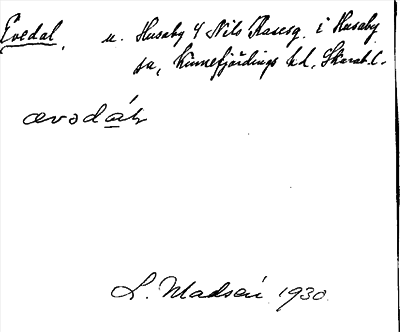 Evedal, u. Husaby 4 Nils Kasesg. i Husaby
sn, Kinnefjärdings hd, Skarab. l.
ævədàh
L. Madsén 1930